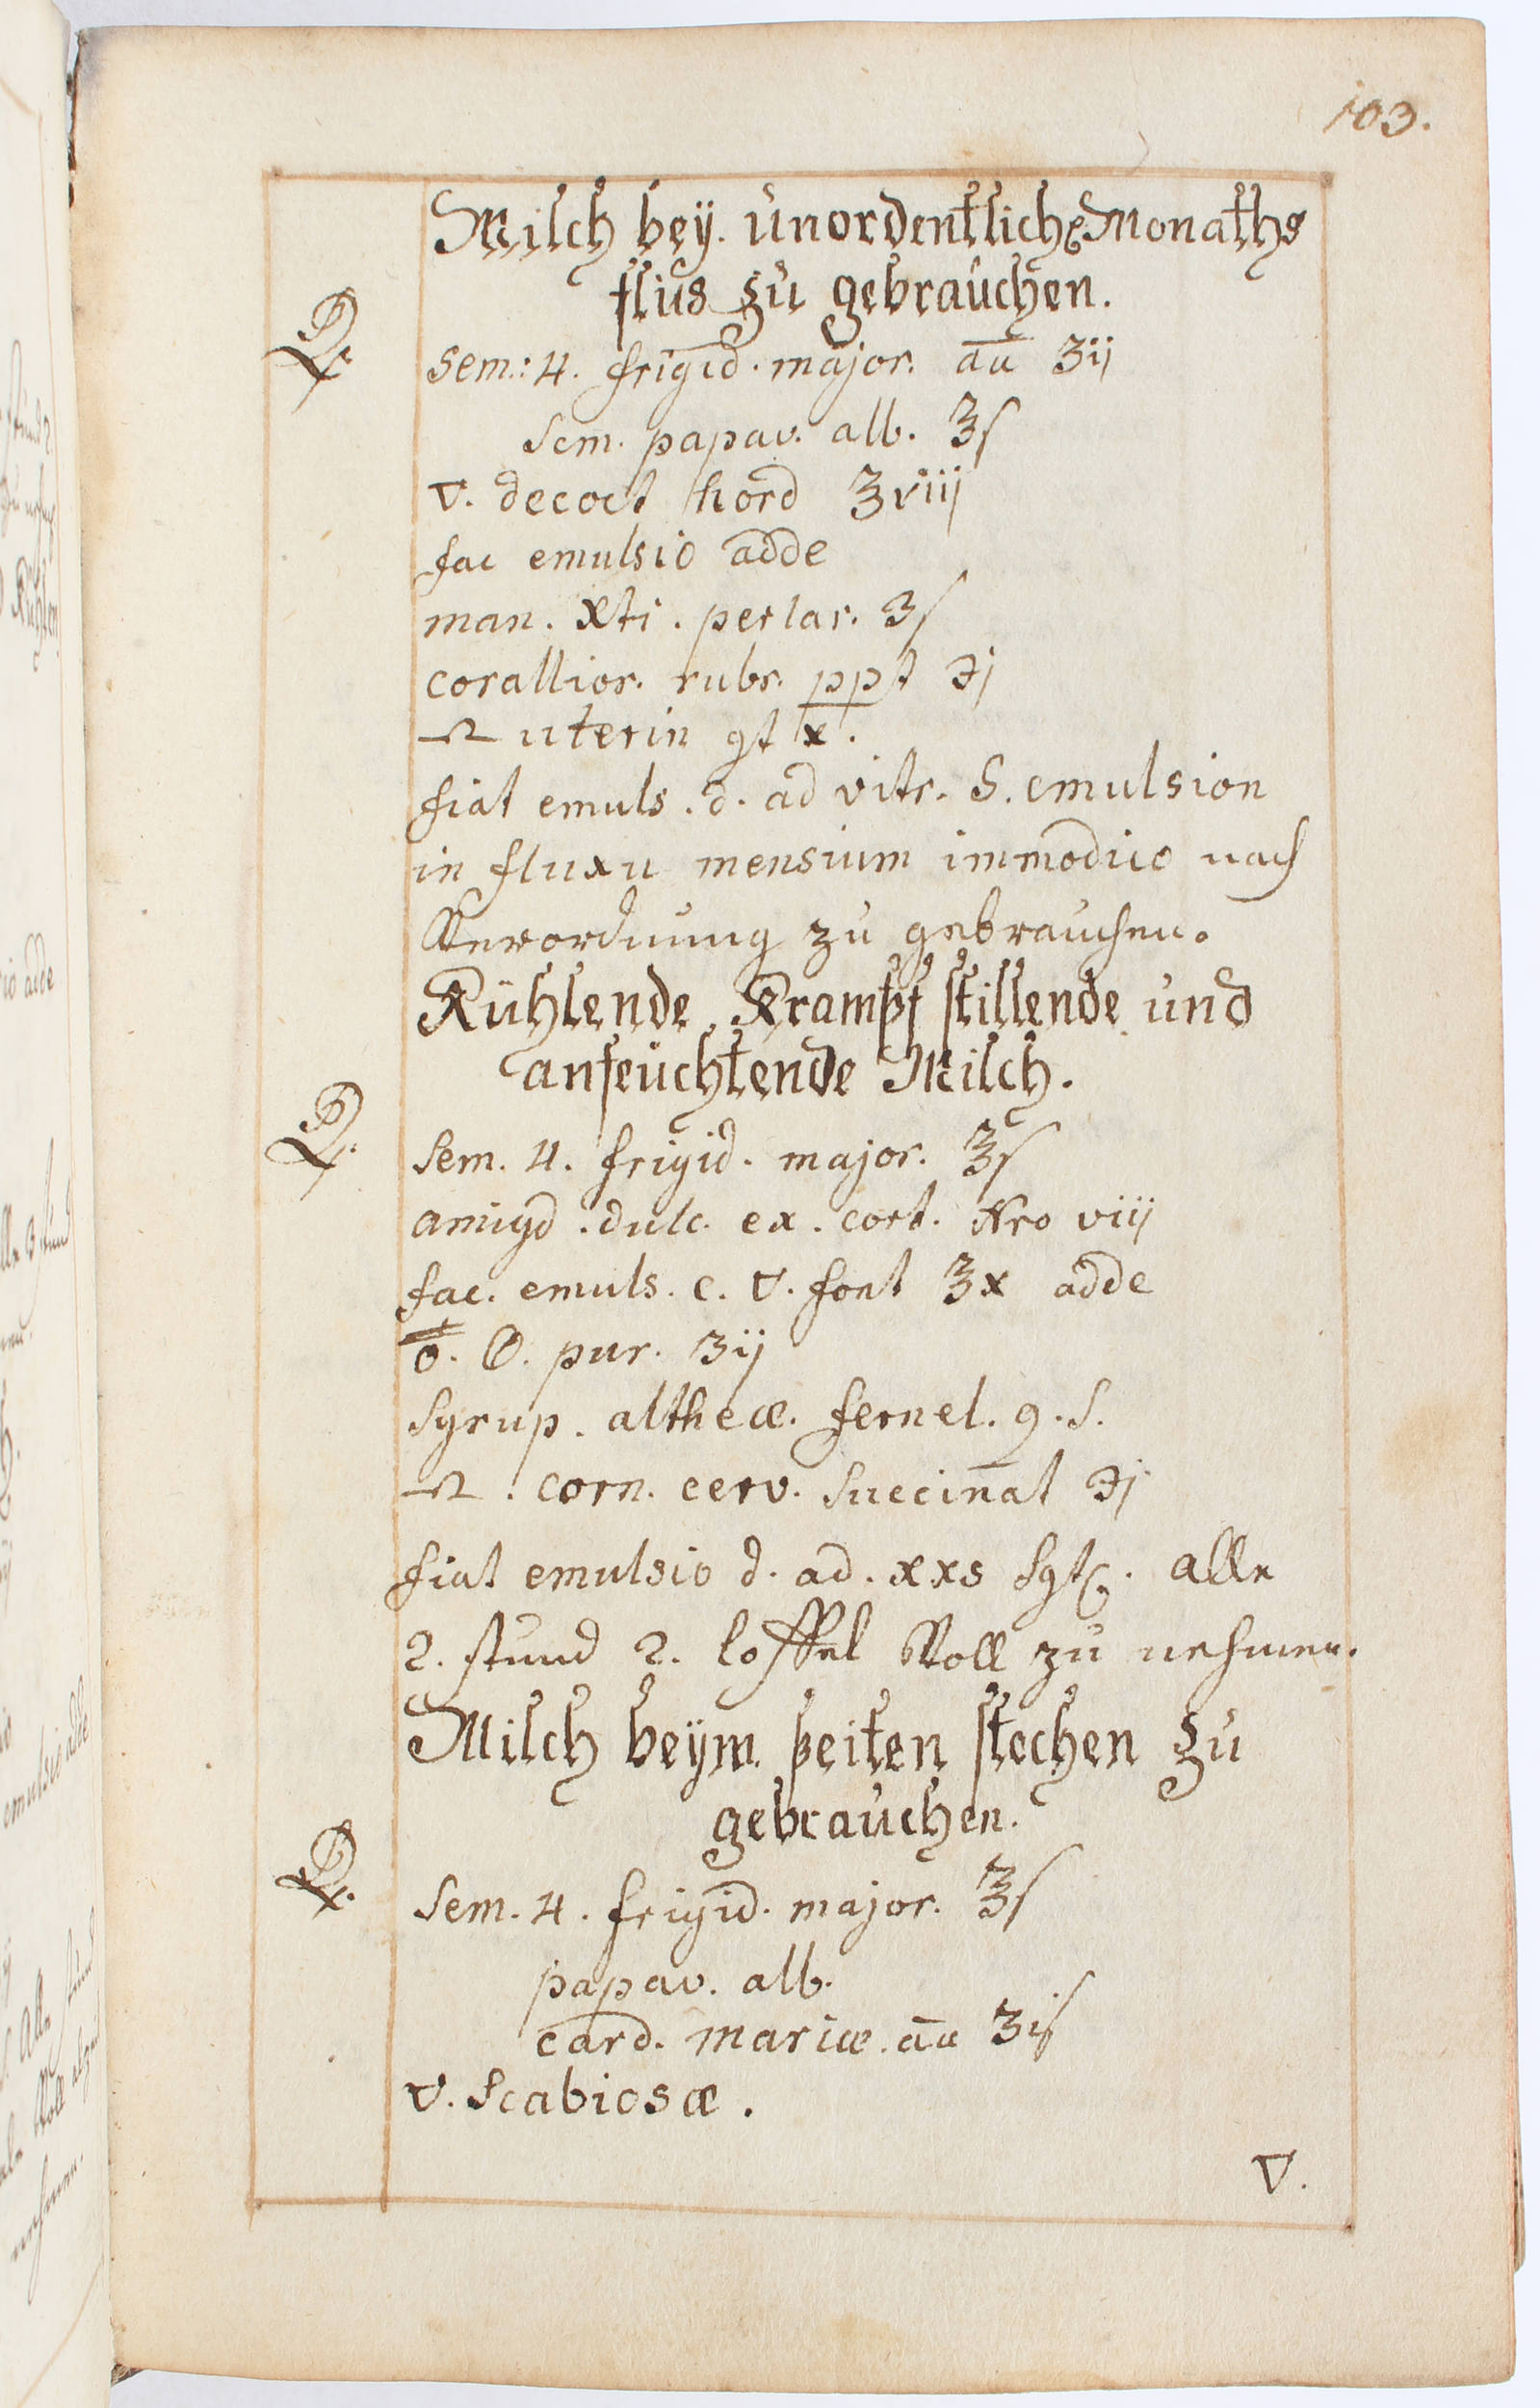 103.
Milch bey. unordentlich Monaths
flus zu gebrauchen.
℞. sem.: 4. frigid. major. āā ʒij
sem. papav. alb. ℥ſ
▽. decoct hord ℥viij
fac emulsio adde
man. Xti. perlar. ʒſ
corallior. rubr. ppt ℈j
♎ uterin gt x.
fiat emuls. d. ad vitr. S. emulsion
in fluxu mensium immodico nach
Verordnung zu gebrauchen.
Kühlende Krampf stillende und
anfeuchtende Milch.
℞. Sem. 4. frigid. major. ℥ſ
amigd. dulc. ex. cort. Nro viij
fac. emuls. c. ▽. font ℥x adde
pur. ʒij
Syrup. altheæ. fernel. q. s.
♎. corn. cerv. succin̄at ℈j
fiat emulsio d. ad. xxs Sgt. alle
2. stund 2. loffel Voll zu nehmen.
Milch beÿm seiten stechen zu
gebrauchen.
℞. Sem. 4. frigid. major. ℥ſ
papav. alb.
card. mariæ. āā ʒiſ
▽. Scabiosæ.
▽.